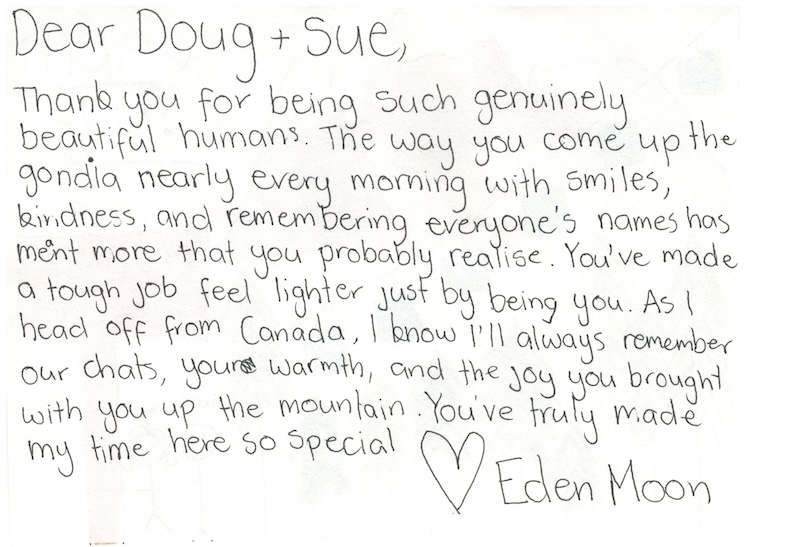 Dear Doug + Sue,
Thank you for being such genuinely
beautiful humans. The way you come up the
gondia nearly every morning with smiles,
kindness, and remembering everyone's names has
meant more that you probably realise. You've made
a tough job feel lighter just by being you. As I
head off from Canada, I know I'll always remember
our chats, your warmth, and the joy you brought
with you up the mountain. You've truly made
my time here so special
♡ Eden Moon